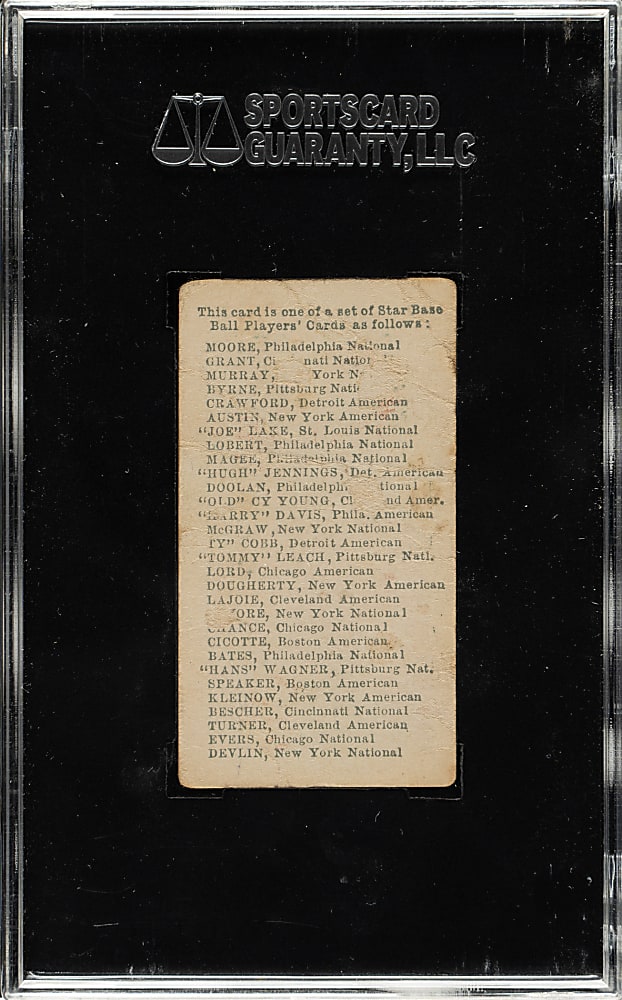 SPORTSCARD
GUARANTY, LLC
This card is one of a set of Star Base
Ball Players' Cards as follows:
MOORE, Philadelphia National
GRANT,
MURRAY, York
BYRNE, Pittsburg
CRAWFORD, Detroit American
AUSTIN, New York American
"JOE" LAKE, St. Louis National
LOBERT, Philadelphia National
MAGEE, Philadelphia National
"HUGH" JENNINGS, Det. American
DOOLAN,
"OLD" CY YOUNG, Amer.
DAVIS, Phila. American
McGRAW, New York National
TY" COBB, Detroit American
"TOMMY" LEACH, Pittsburg Natl.
LORD, Chicago American
DOUGHERTY, New York American
LAJOIE, Cleveland American
New York National
Chicago National
CICOTTE, Boston American
BATES, Philadelphia National
"HANS" WAGNER, Pittsburg Nat.
SPEAKER, Boston American
KLEINOW, New York American
BESCHER, Cincinnati National
TURNER, Cleveland American
EVERS, Chicago National
DEVLIN, New York National